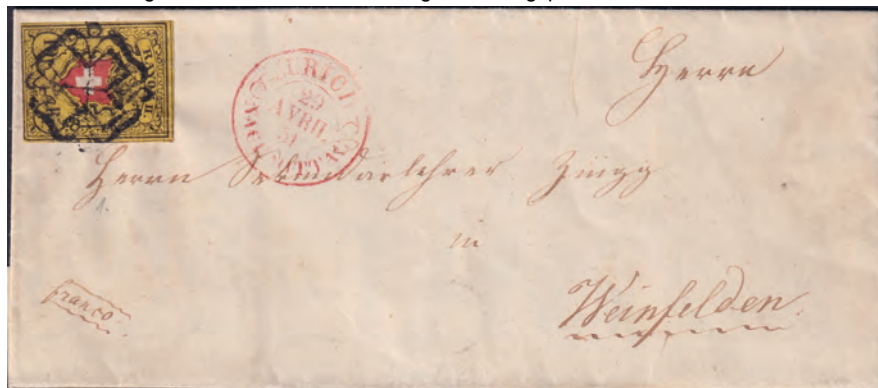 RAYON II.
ZÜRICH
29
AVRIL
51
NACHMITTAG
Herrn
Herrn Secundarlehrer Zingg
in
Weinfelden.
franco.